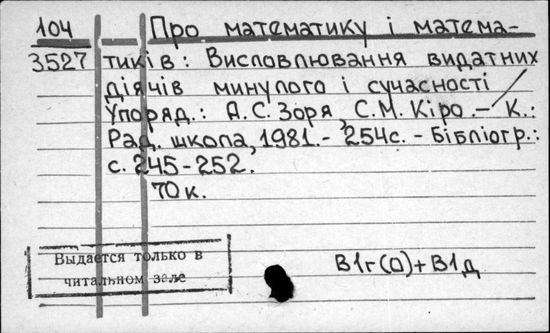 104 Про математику і матема-
3527 тиків: Висловлювання видатних
діячів минулого і сучасності
Упоряд.: А.С.Зоря, С.М.Кіро.- К.:
Рад. школа, 1981.- 254с. - Бібліогр.:
с. 245-252.
70к.
Выдается только в
читальном зале
В1г(0)+В1д